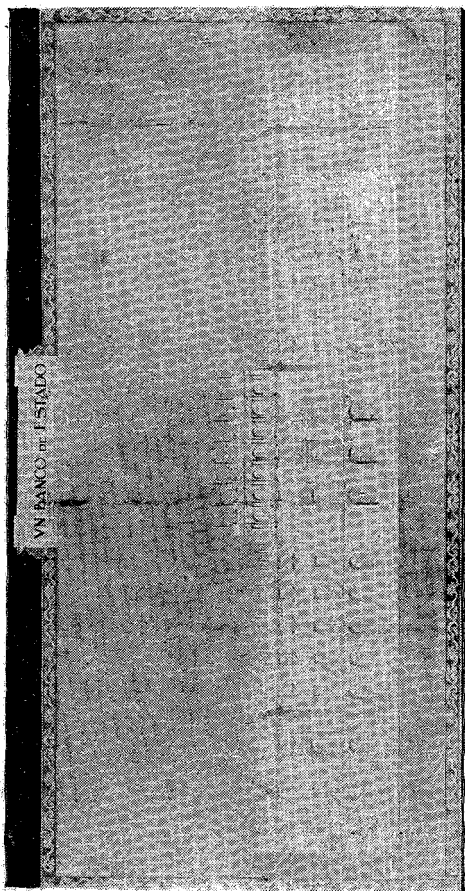 VN BANCO DE ESTADO